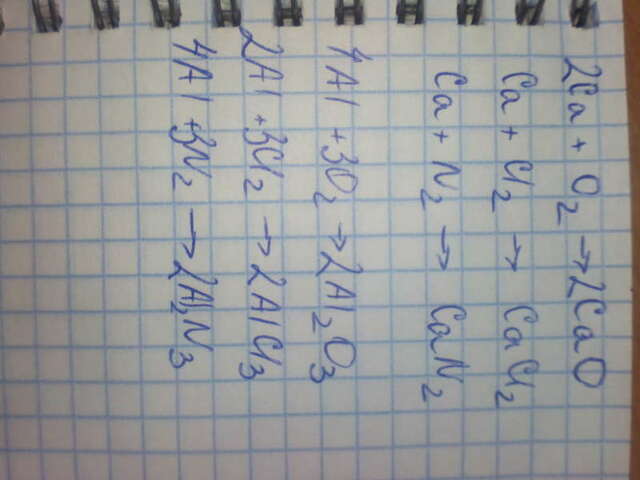 2Ca + O₂ → 2CaO
Ca + Cl₂ → CaCl₂
Ca + N₂ → CaN₂
4Al + 3O₂ → 2Al₂O₃
2Al + 3Cl₂ → 2AlCl₃
4Al + 3N₂ → 2Al₂N₃